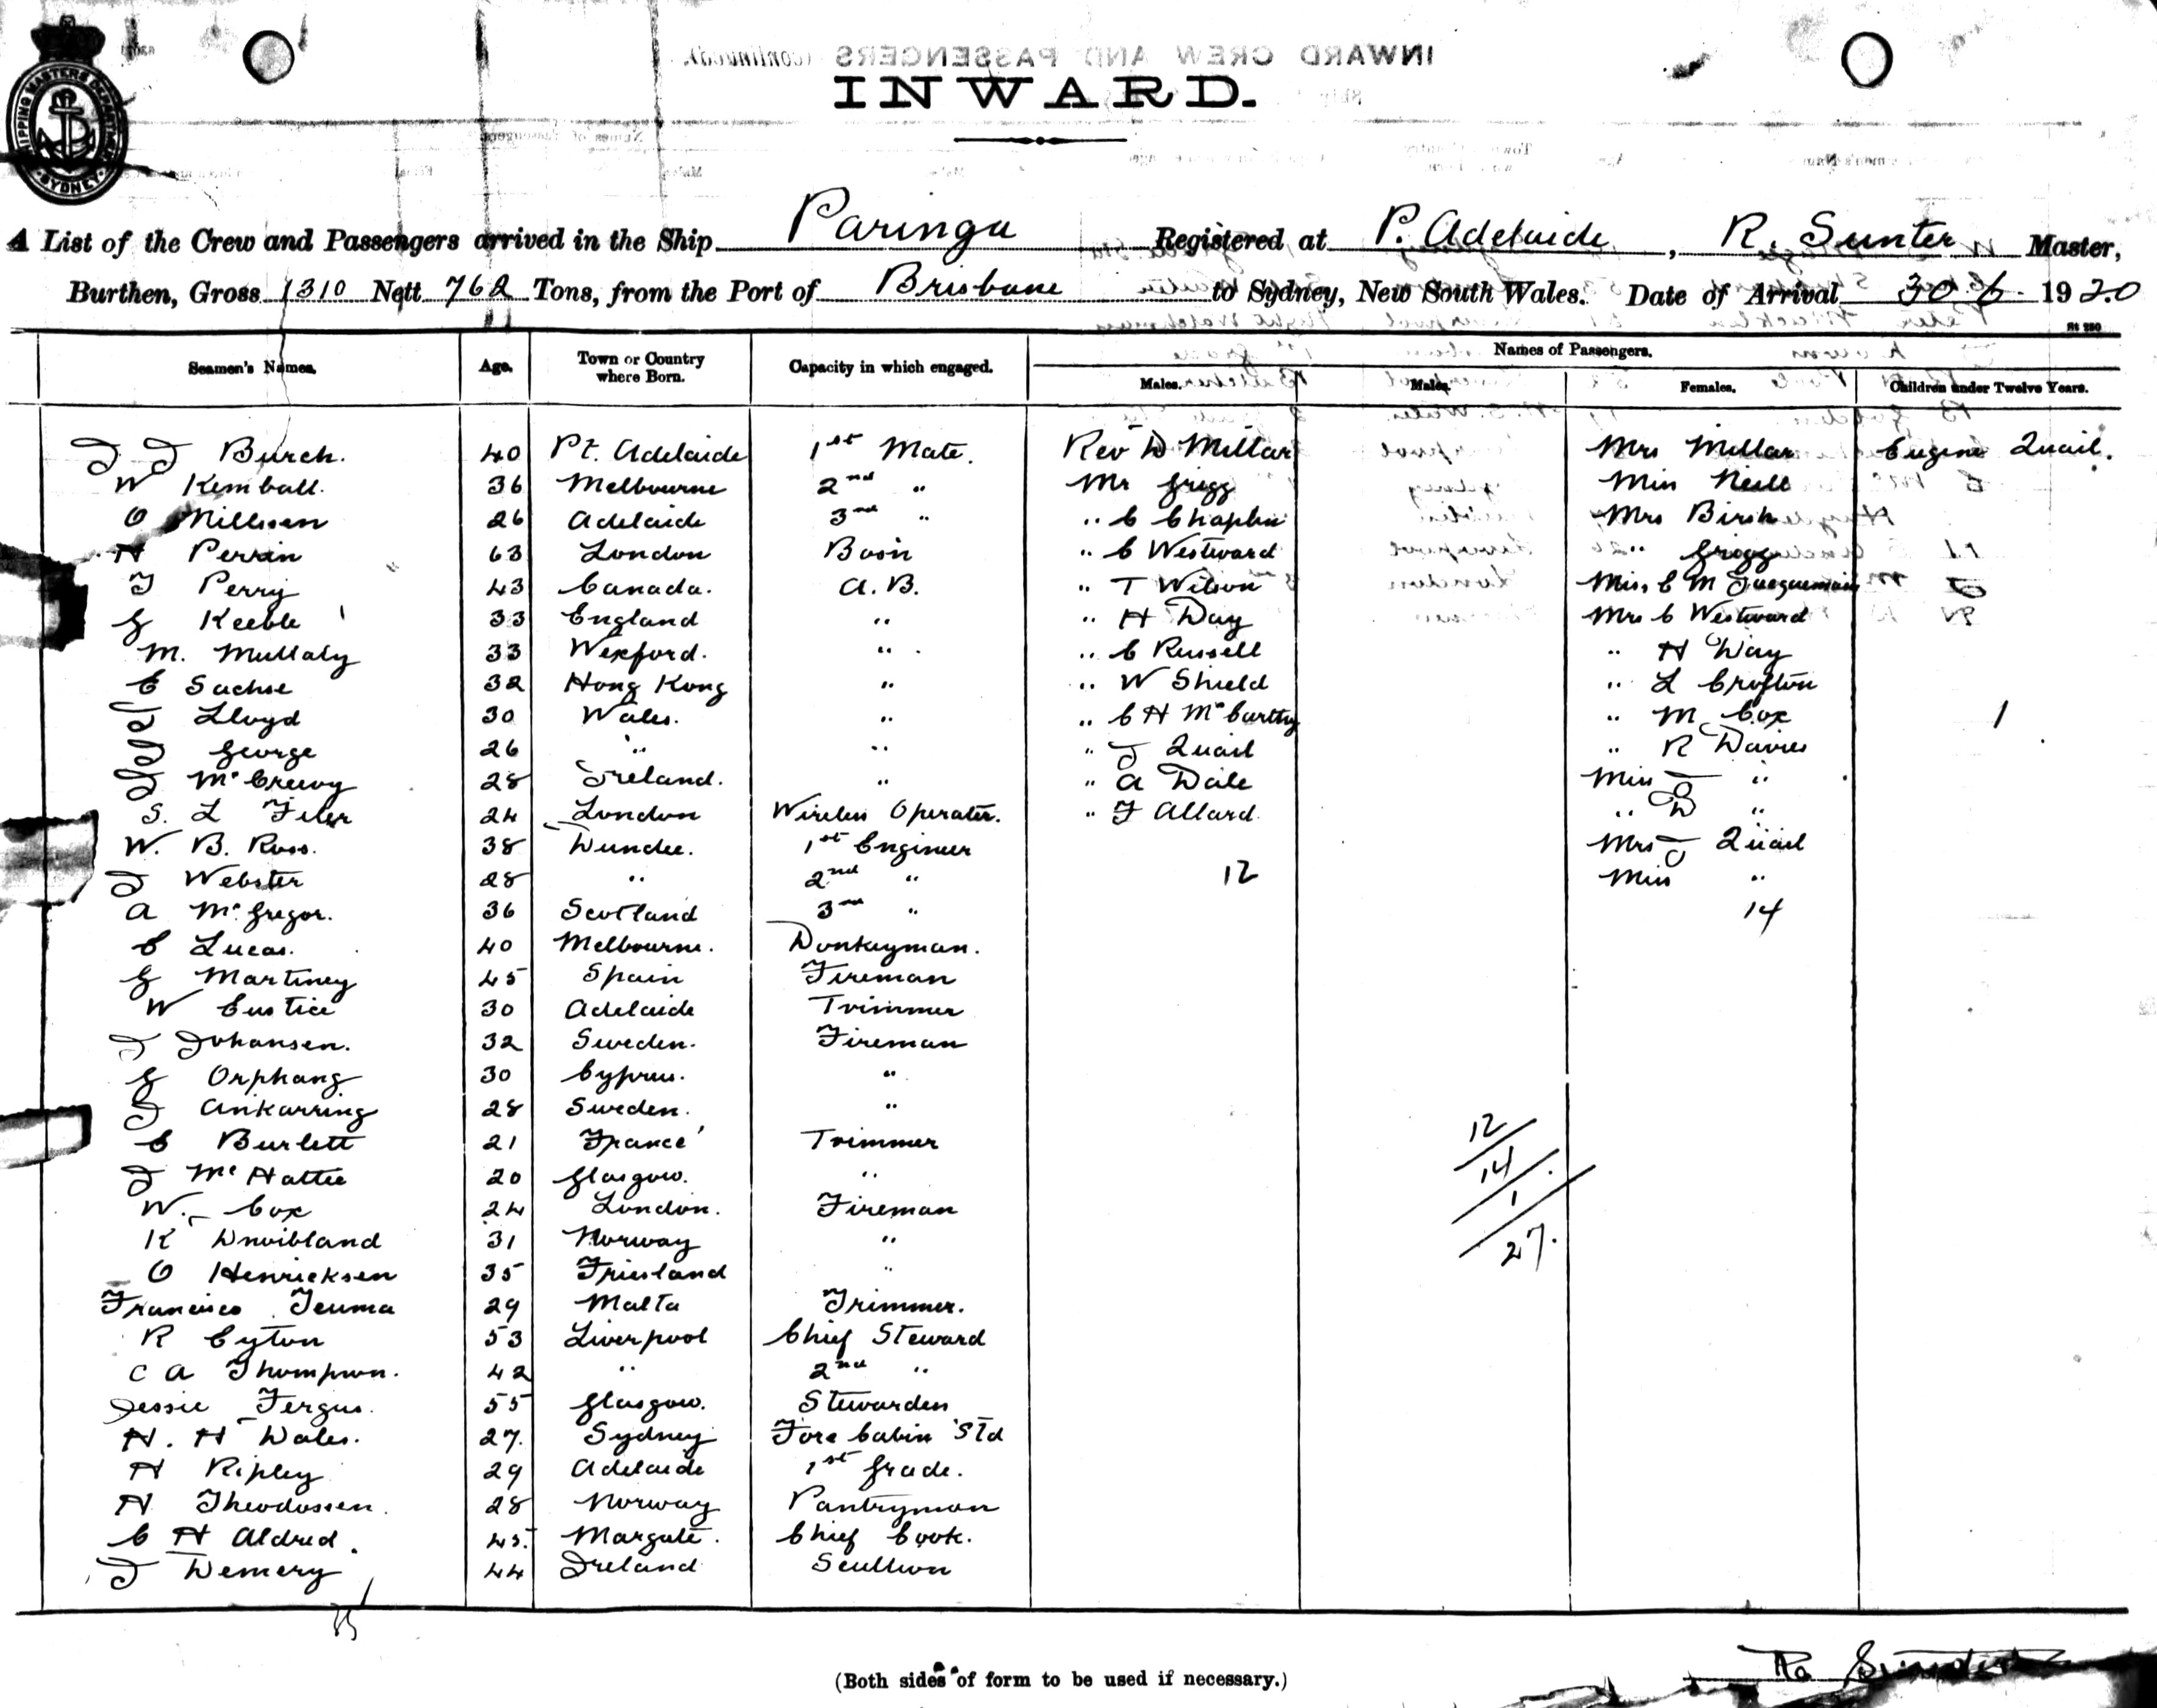 SHIPPING MASTERS DEPARTMENT SYDNEY
INWARD CREW AND PASSENGERS (continued).
INWARD.
A List of the Crew and Passengers arrived in the Ship Paringa Registered at P. Adelaide, R. Sunter Master,
Burthen, Gross 1310 Nett 762 Tons, from the Port of Brisbane to Sydney, New South Wales. Date of Arrival 30 6. 1920
Seamen's Names. Age. Town or Country where Born. Capacity in which engaged. Names of Passengers.
Males. Males. Females. Children under Twelve Years.
J J Burch. 40 Pt. Adelaide 1st Mate. Rev D Millar Mrs Millar Eugene Quail.
W Kemball. 36 Melbourne 2nd " Mr Grigg Miss Neill
O Nillsen 26 Adelaide 3rd " " C Chaplin Mrs Birch
H Perrin 63 London Bosn " C Westward " Grigg
J Perry 43 Canada. A.B. " T Wilson Miss C M
G Keeble 33 England " " H Day Mrs C Westward
M. Mullaly 33 Wexford. " " C Russell " H Way
C Sachse 32 Hong Kong " " W Shield " L Crofton
J Lloyd 30 Wales. " " C H McCarthy " M Cox 1
J George 26 " " " J Quail " R Davies
J McCreevy 28 Ireland. " " A Dale Miss J "
S. L Filer 24 London Wireless Operater. " F Allard " D "
W. B. Ross. 38 Dundee. 1st Engineer Mrs J Quail
J Webster 28 " 2nd " 12 Miss "
A McGregor. 36 Scotland 3rd " 14
C Lucas. 40 Melbourne. Donkeyman.
G Martiney 45 Spain Fireman
W Eustice 30 Adelaide Trimmer
J Johansen. 32 Sweden. Fireman
G Orphang 30 Cyprus. "
J Ankarring 28 Sweden. "
C Burlett 21 France Trimmer 12
J McHattie 20 Glasgow. " 14
W. Cox 24 London. Fireman 1
K 31 Norway " 27.
O Henricksen 35 Friesland "
Francisco Teuma 29 Malta Trimmer.
R Cyton 53 Liverpool Chief Steward
C A Thompson. 42 " 2nd "
Jessie Fergus. 55 Glasgow. Stewardess
H. H Wales. 27. Sydney Fore Cabin Std
H Ripley 29 Adelaide 1st Grade.
H Theodossen. 28 Norway Pantryman
C H Aldred. 45. Margate. Chief Cook.
J Demery 44 Ireland Scullion
(Both sides of form to be used if necessary.)